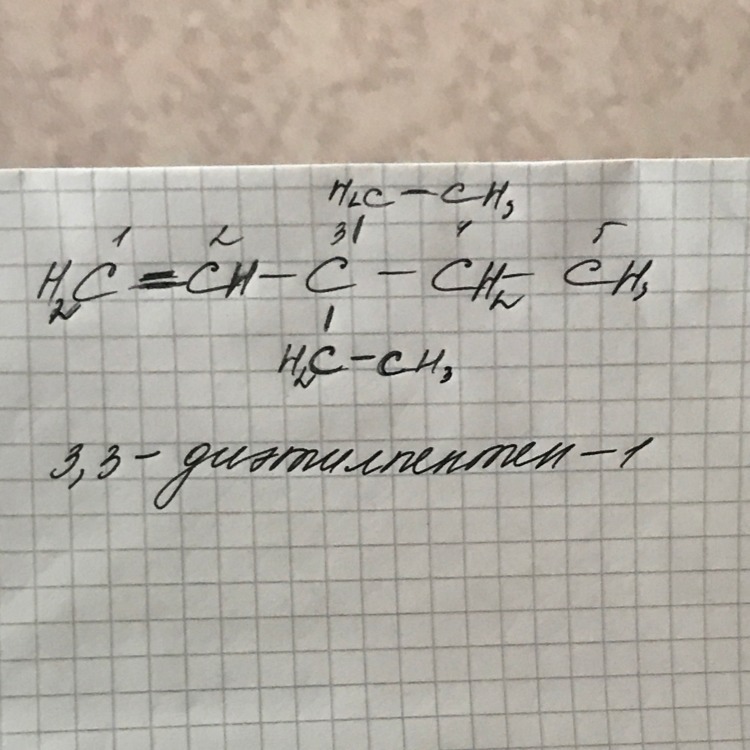 H₂C – CH₃
1 2 3 4 5
H₂C = CH – C – CH₂ – CH₃
H₂C – CH₃
3,3 – диэтилпентен – 1